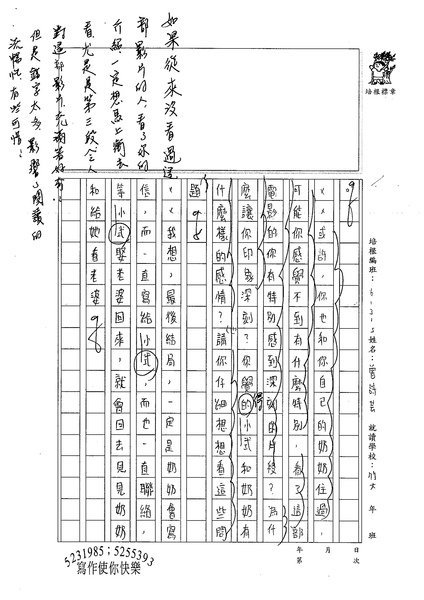 培根標章
培根編班：
姓名：
就讀學校：竹大
年
班
年
月
日
第
次
××或許，你也和你自己的奶奶住過，
可能你感覺不到有什麼特別，看了這部
電影的你有特別感到深刻的片段？為什
麼讓你印象深刻？你覺的小武和奶奶有
什麼樣的感情？請你仔細想想看這些問
題。
××我想，最後結局，一定是奶奶會寫
信，而一直寫給小武，而也一直聯絡，
等小武娶老婆回來，就會回去見見奶奶，
和給她看老婆。
如果從來沒看過這
部影片的人，看了你的
介紹一定想馬上衝去
看，尤其是第三段，令人
對這部影片充滿著好奇！
但是錯字太多，影響了閱讀的
流暢性，有些可惜！
5231985；5255393
寫作使你快樂